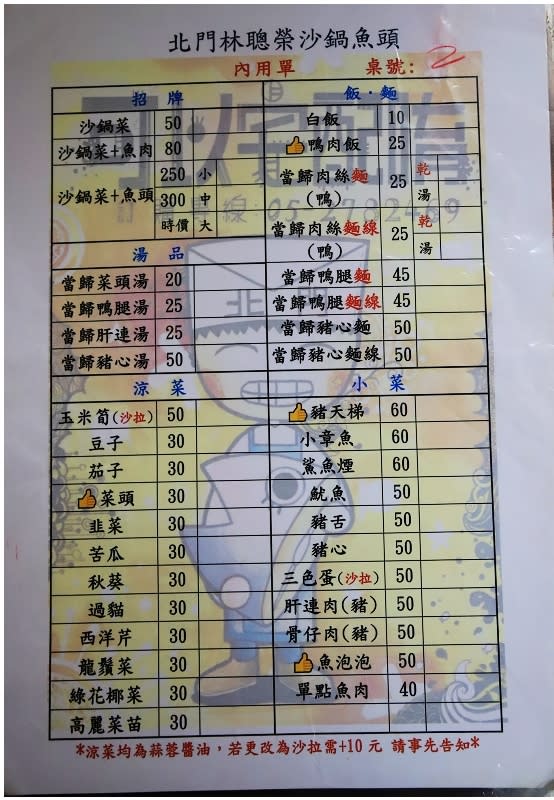 北門林聰榮沙鍋魚頭
內用單 桌號: 2
招牌
沙鍋菜 50
沙鍋菜+魚肉 80
沙鍋菜+魚頭 250 小
300 中
時價 大
湯品
當歸菜頭湯 20
當歸鴨腿湯 25
當歸肝連湯 25
當歸豬心湯 50
飯·麵
白飯 10
鴨肉飯 25
當歸肉絲麵(鴨) 25 乾 湯
當歸肉絲麵線(鴨) 25 乾 湯
當歸鴨腿麵 45
當歸鴨腿麵線 45
當歸豬心麵 50
當歸豬心麵線 50
涼菜
玉米筍(沙拉) 50
豆子 30
茄子 30
菜頭 30
韭菜 30
苦瓜 30
秋葵 30
過貓 30
西洋芹 30
龍鬚菜 30
綠花椰菜 30
高麗菜苗 30
小菜
豬天梯 60
小章魚 60
鯊魚煙 60
魷魚 50
豬舌 50
豬心 50
三色蛋(沙拉) 50
肝連肉(豬) 50
骨仔肉(豬) 50
魚泡泡 50
單點魚肉 40
*涼菜均為蒜蓉醬油，若更改為沙拉需+10 元 請事先告知*